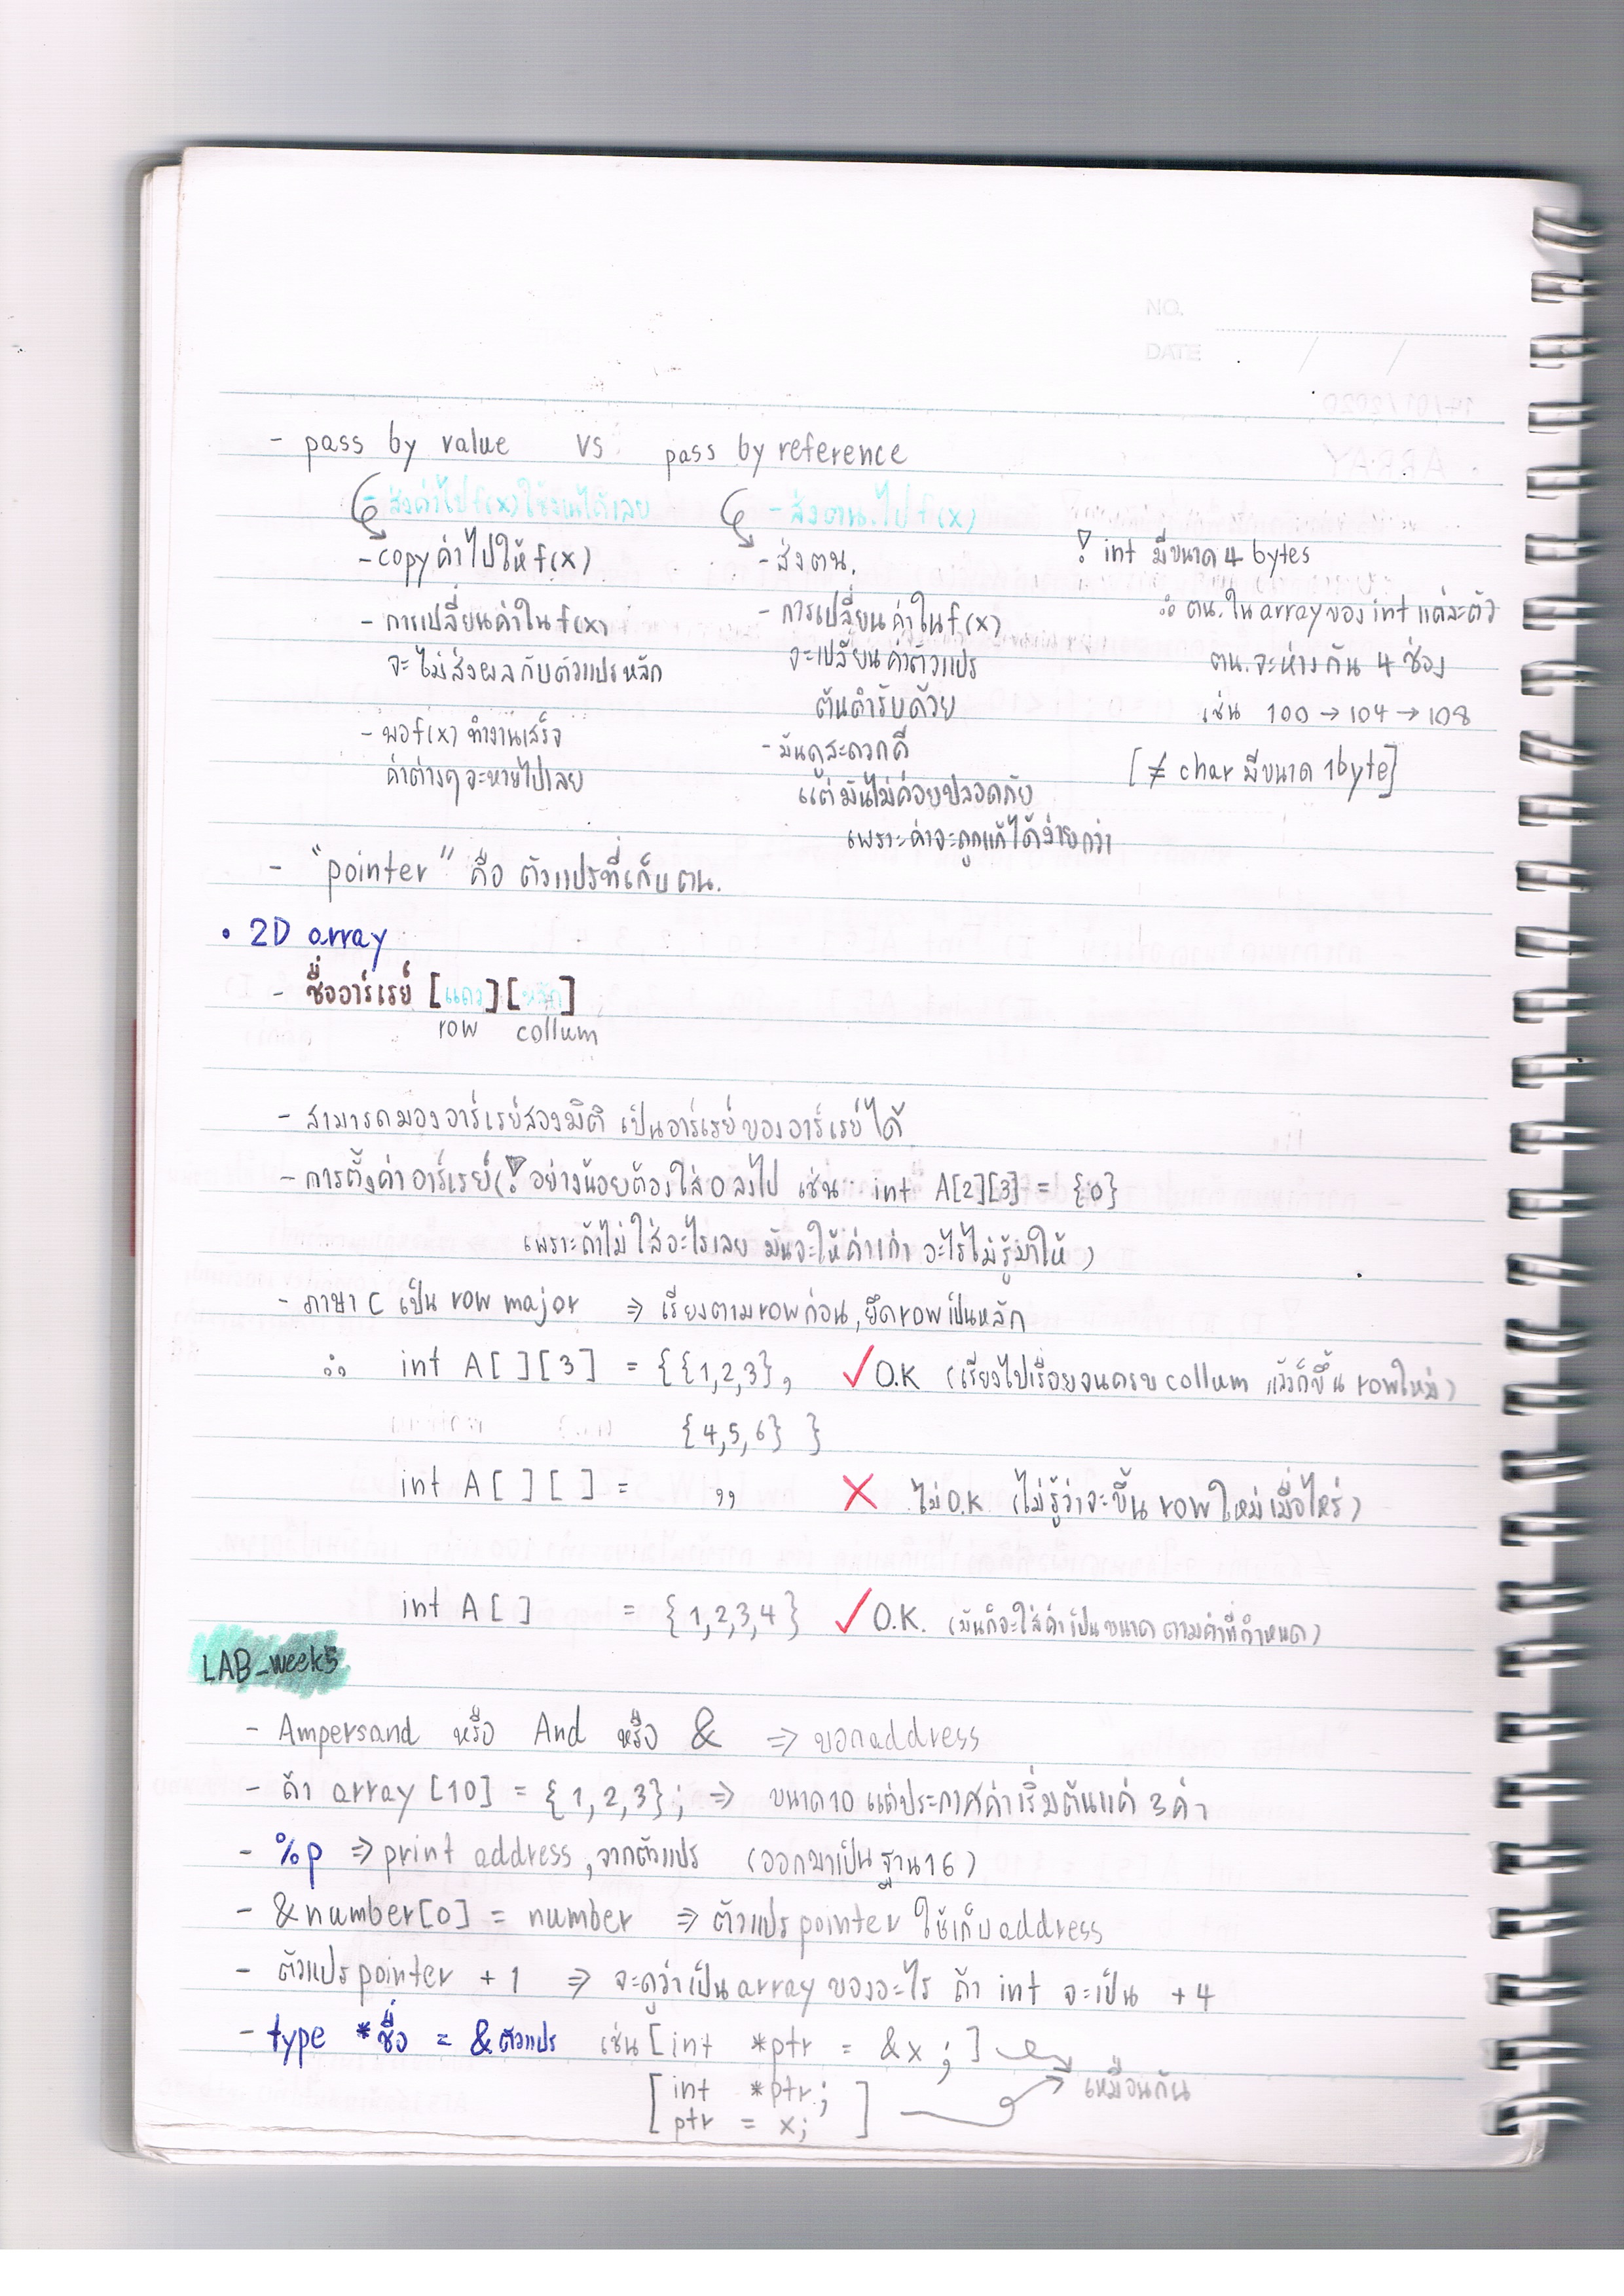 NO.
DATE / /
- pass by value vs pass by reference
- ส่งค่าไป f(x) ใช้งานได้เลย
- copy ค่าไปให้ f(x)
- การเปลี่ยนค่าใน f(x)
จะไม่ส่งผลกับตัวแปรหลัก
- พอ f(x) ทำงานเสร็จ
ค่าต่างๆจะหายไปเลย
- ส่งตน.ไป f(x)
- ส่งตน.
- การเปลี่ยนค่าใน f(x)
จะเปลี่ยนค่าตัวแปร
ต้นตำรับด้วย
- มันดูสะดวกดี
แต่มันไม่ค่อยปลอดภัย
เพราะค่าจะถูกแก้ได้ง่ายกว่า
! int มีขนาด 4 bytes
∴ ตน.ใน array ของ int แต่ละตัว
ตน.จะห่างกัน 4 ช่อง
เช่น 100 → 104 → 108
[≠ char มีขนาด 1 byte]
- "pointer" คือ ตัวแปรที่เก็บตน.
• 2D array
- ชื่ออาร์เรย์ [แถว][หลัก]
row collum
- สามารถมองอาร์เรย์สองมิติ เป็นอาร์เรย์ของอาร์เรย์ได้
- การตั้งค่าอาร์เรย์ (! อย่างน้อยต้องใส่ 0 ลงไป เช่น int A[2][3] = {0}
เพราะถ้าไม่ใส่อะไรเลย มันจะให้ค่าเก่าอะไรไม่รู้มาให้)
- ภาษา C เป็น row major ⇒ เรียงตาม row ก่อน, ยึด row เป็นหลัก
∴ int A[ ][3] = {{1,2,3}, ✓ O.K (เรียงไปเรื่อยจนครบ collum แล้วก็ขึ้น row ใหม่)
{4,5,6} }
int A[ ][ ] = ,, ✗ ไม่ O.K (ไม่รู้ว่าจะขึ้น row ใหม่เมื่อไหร่)
int A[ ] = {1,2,3,4} ✓ O.K. (มันก็จะใส่ค่าเป็นขนาดตามค่าที่กำหนด)
LAB_week5
- Ampersand หรือ And หรือ & ⇒ บอก address
- ถ้า array[10] = {1,2,3}; ⇒ ขนาด 10 แต่ประกาศค่าเริ่มต้นแค่ 3 ค่า
- %p ⇒ print address, จากตัวแปร (ออกมาเป็นฐาน 16)
- &number[0] = number ⇒ ตัวแปร pointer ใช้เก็บ address
- ตัวแปร pointer + 1 ⇒ จะดูว่าเป็น array ของอะไร ถ้า int จะเป็น +4
- type *ชื่อ = &ตัวแปร เช่น [int *ptr = &x;]
[int *ptr; เหมือนกัน
ptr = x;]